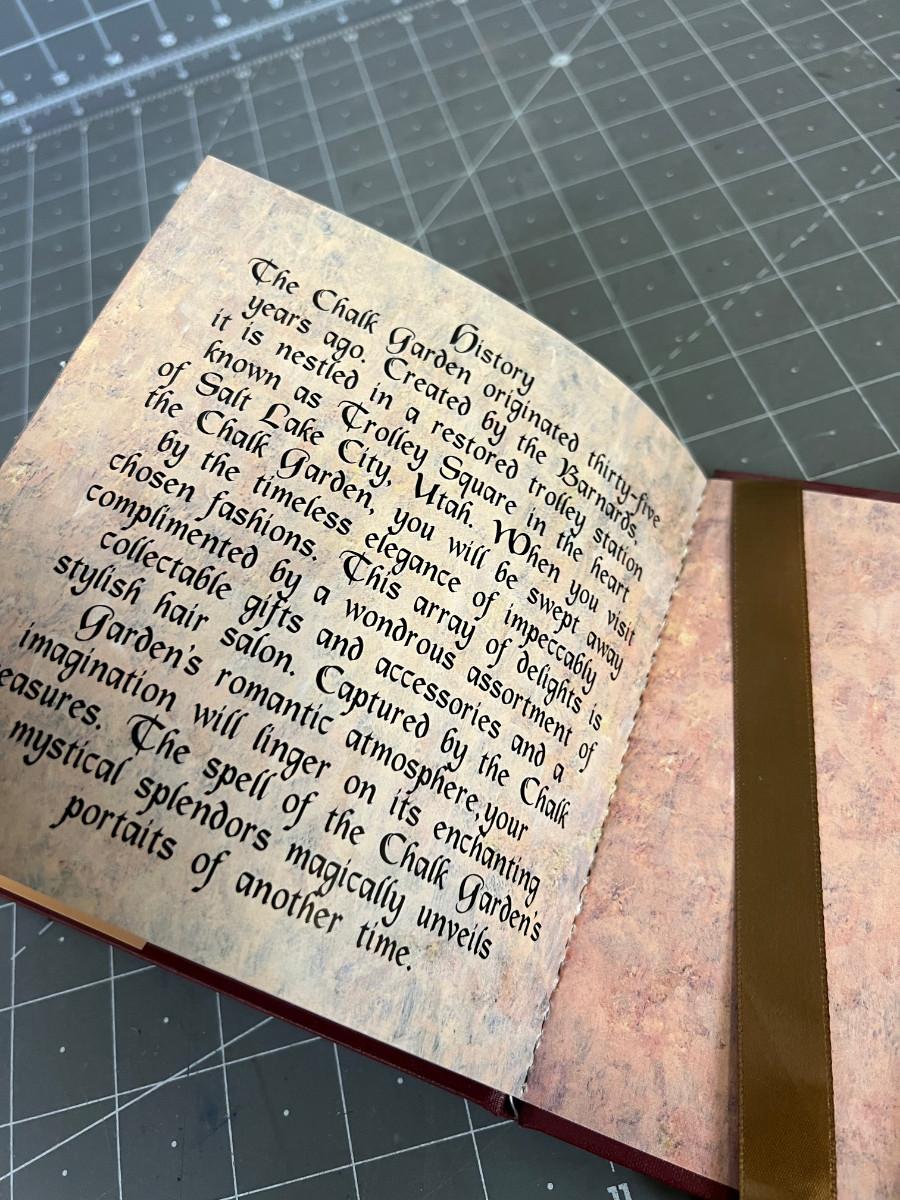 History
The Chalk Garden originated thirty-five
years ago. Created by the Barnards,
it is nestled in a restored trolley station
known as Trolley Square in the heart
of Salt Lake City, Utah. When you visit
the Chalk Garden, you will be swept away
by the timeless elegance of impeccably
chosen fashions. This array of delights is
complimented by a wondrous assortment of
collectable gifts and accessories and a
stylish hair salon. Captured by the Chalk
Garden's romantic atmosphere, your
imagination will linger on its enchanting
easures. The spell of the Chalk Garden's
mystical splendors magically unveils
portaits of another time.
11